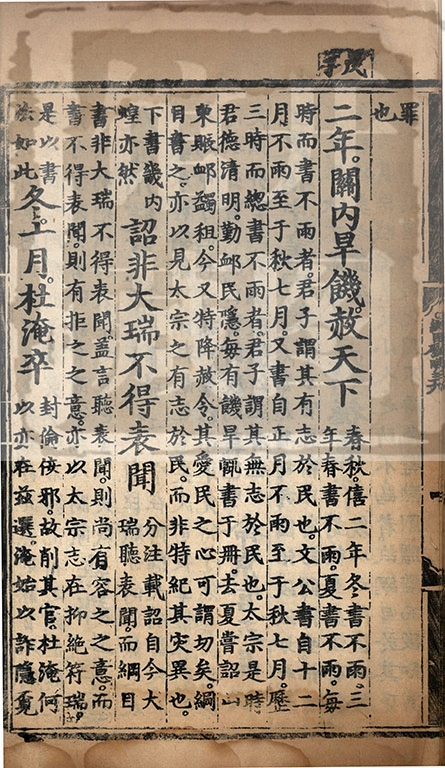 罪
也
二年。關內旱饑。赦天下
春秋。僖二年冬。書不雨。三
年春書不雨。夏書不雨。每
時而書不雨者。君子謂其有志於民也。文公書自十二
月不雨至于秋七月。又書自正月不雨至于秋七月。歷
三時而總書不雨者。君子謂其無志於民也。太宗是時
君德清明。勤卹民隱。每有饑旱輒書于冊。去夏嘗詔山
東賑卹蠲租。今又特降赦令。其愛民之心可謂切矣。綱
目書之。亦以見太宗之有志於民。而非特紀其災異也。
下書畿內
蝗亦然
詔非大瑞不得表聞
分注載詔自今大
瑞聽表聞。而綱目
書非大瑞不得表聞。蓋言聽表聞。則尚有容之之意。而
書不得表聞。則有拒之之意。亦以太宗志在抑絶符瑞。
是以書
法如此
冬。十月。杜淹卒
封倫佞邪。故削其官。杜淹何
以亦在茲選。淹始以詐隱覓